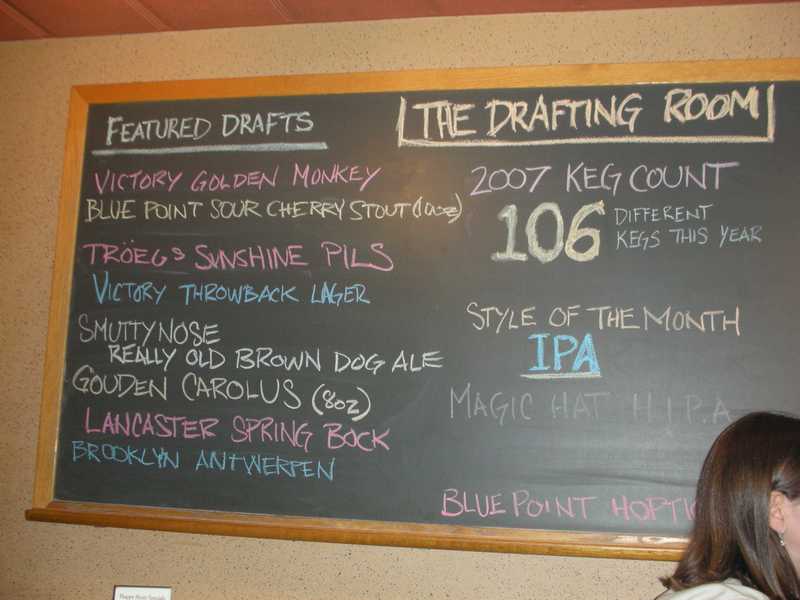 FEATURED DRAFTS
VICTORY GOLDEN MONKEY
BLUE POINT SOUR CHERRY STOUT (10oz)
TRÖEGS SUNSHINE PILS
VICTORY THROWBACK LAGER
SMUTTYNOSE
REALLY OLD BROWN DOG ALE
GOUDEN CAROLUS (8oz)
LANCASTER SPRING BOCK
BROOKLYN ANTWERPEN
THE DRAFTING ROOM
2007 KEG COUNT
106 DIFFERENT
KEGS THIS YEAR
STYLE OF THE MONTH
IPA
MAGIC HAT H.I.P.A
BLUE POINT HOPTI
Happy Hour Specials